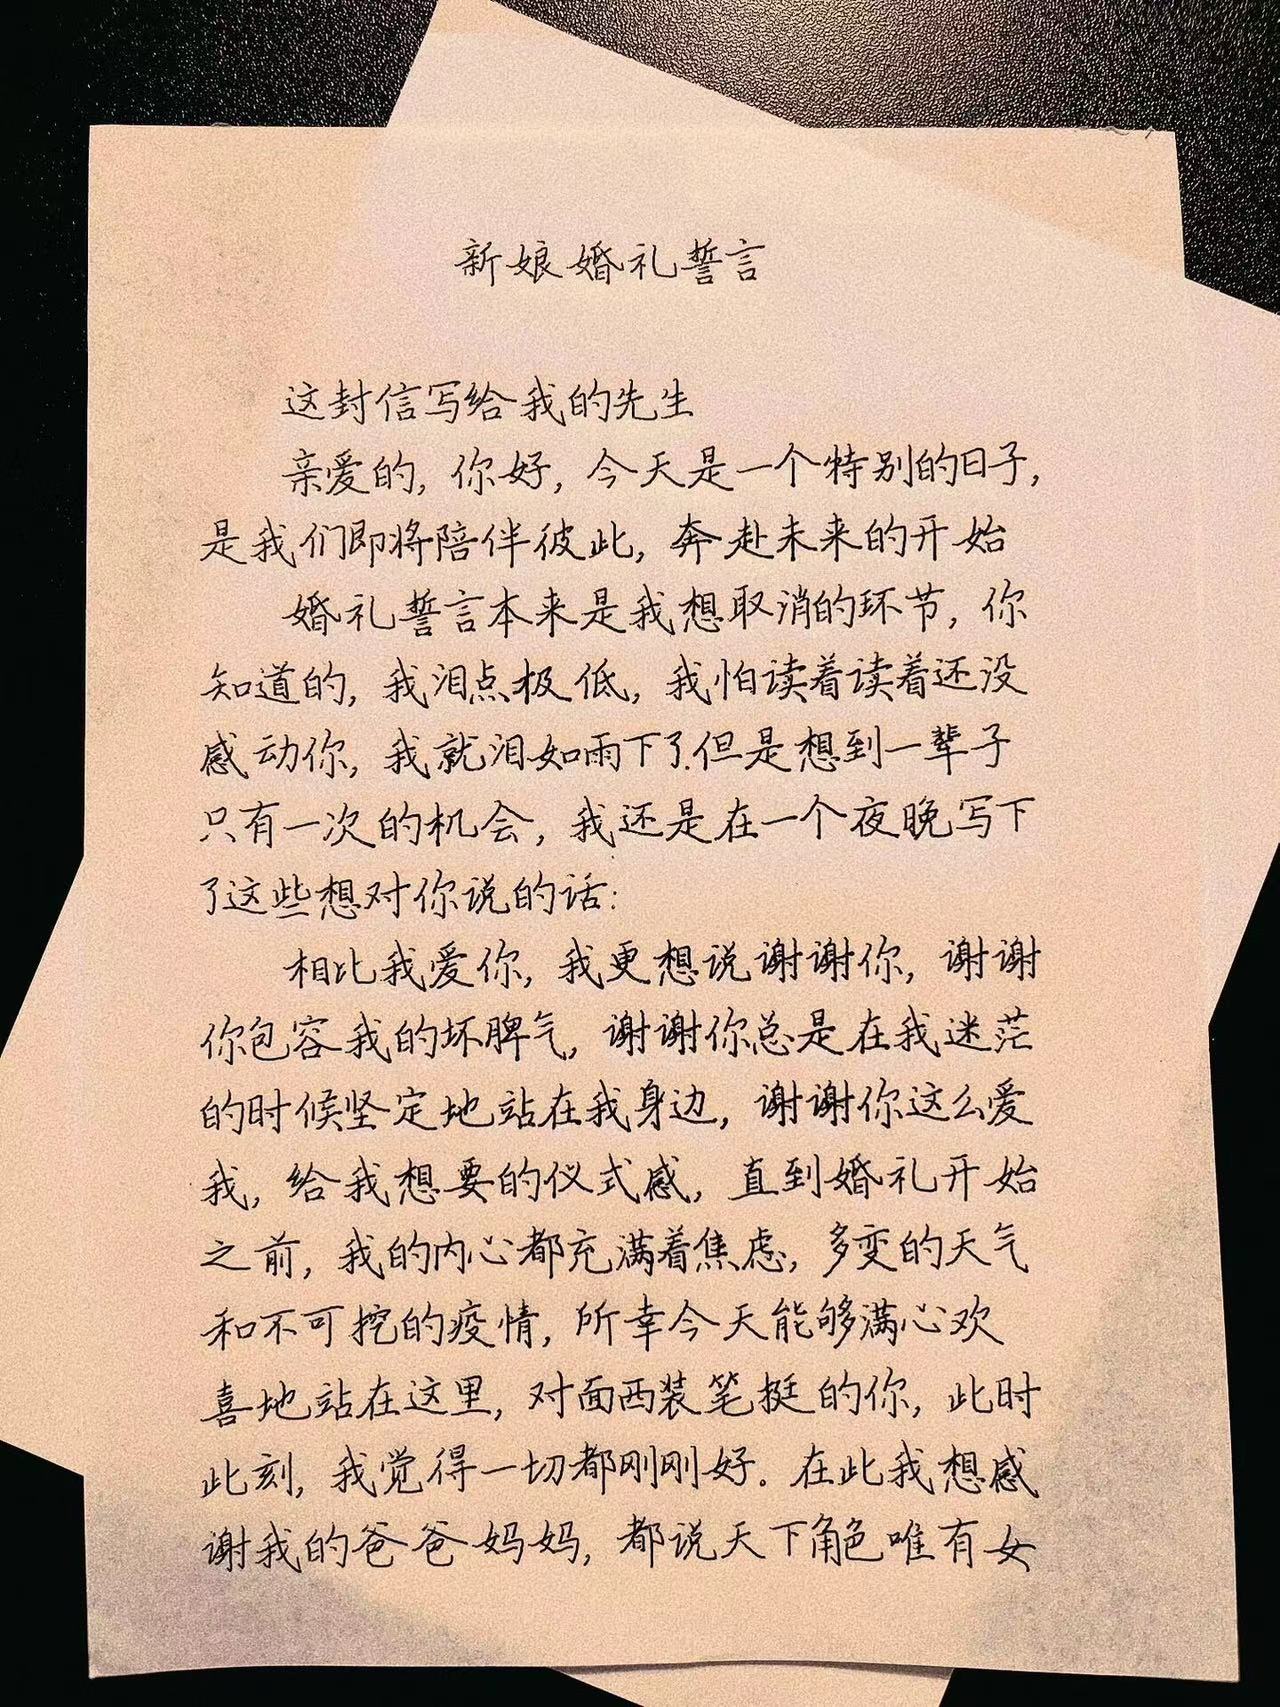 新娘婚礼誓言
这封信写给我的先生
亲爱的,你好,今天是一个特别的日子,
是我们即将陪伴彼此,奔赴未来的开始
婚礼誓言本来是我想取消的环节,你
知道的,我泪点极低,我怕读着读着还没
感动你,我就泪如雨下了.但是想到一辈子
只有一次的机会,我还是在一个夜晚写下
了这些想对你说的话:
相比我爱你,我更想说谢谢你,谢谢
你包容我的坏脾气,谢谢你总是在我迷茫
的时候坚定地站在我身边,谢谢你这么爱
我,给我想要的仪式感,直到婚礼开始
之前,我的内心都充满着焦虑,多变的天气
和不可挖的疫情,所幸今天能够满心欢
喜地站在这里,对面西装笔挺的你,此时
此刻,我觉得一切都刚刚好。在此我想感
谢我的爸爸妈妈,都说天下角色唯有女